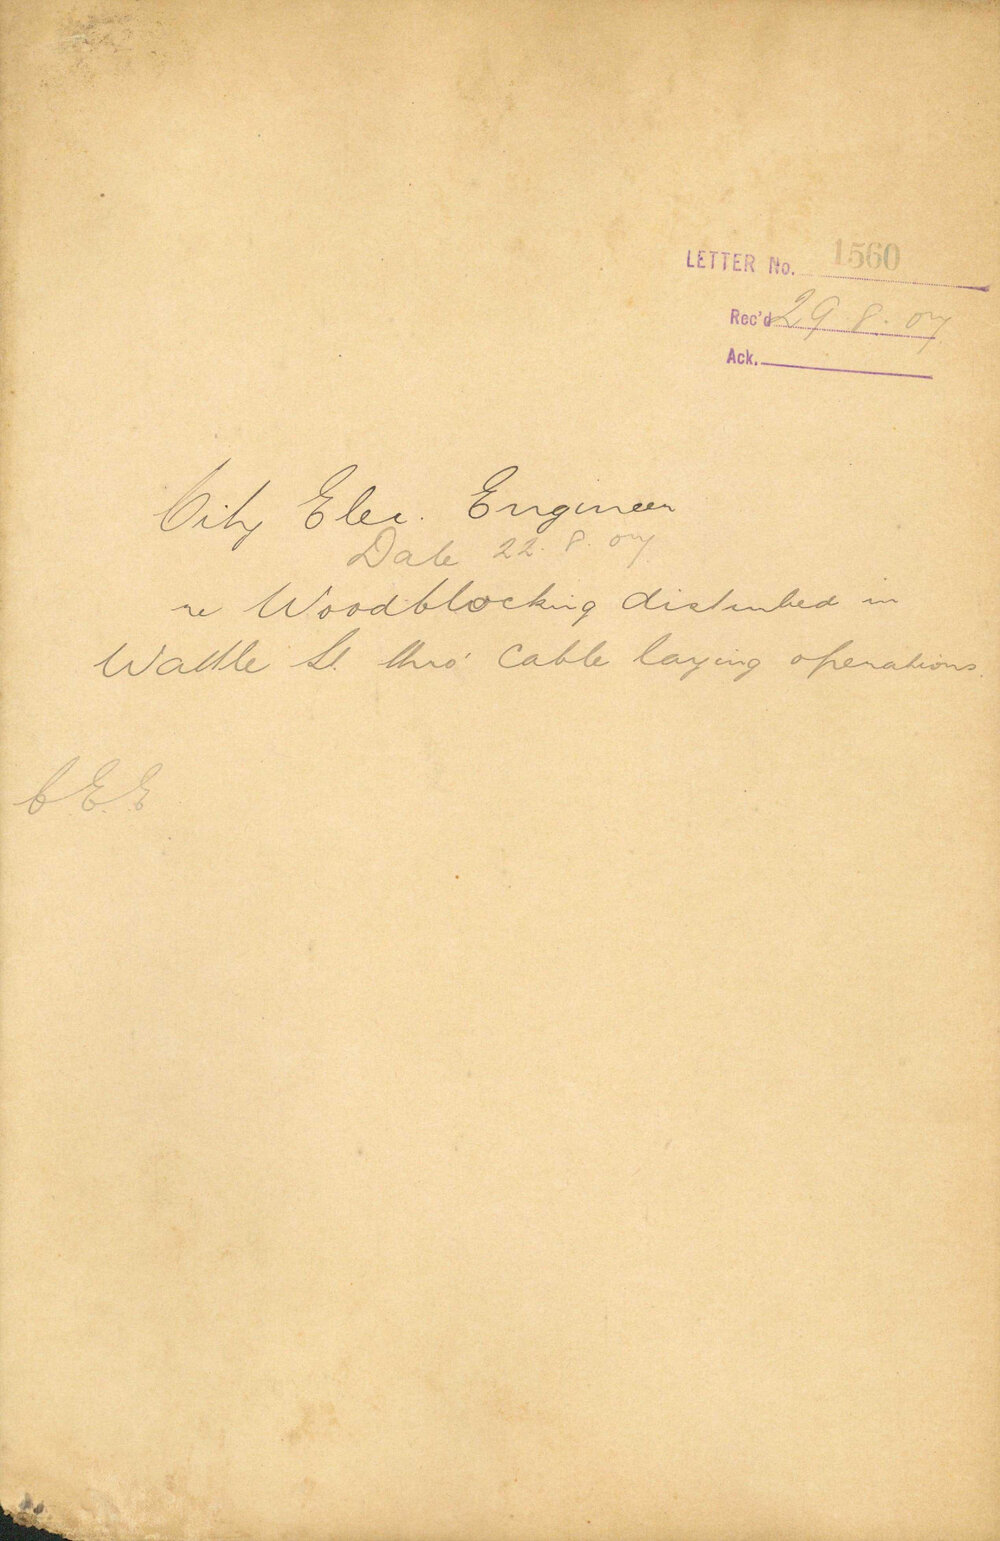 LETTER No. 1560
Rec'd 29.8.07
Ack.
City Elec. Engineer
Date 22.8.07
re Woodblocking disturbed in
Wattle St. thro' cable laying operations.
C.E.E